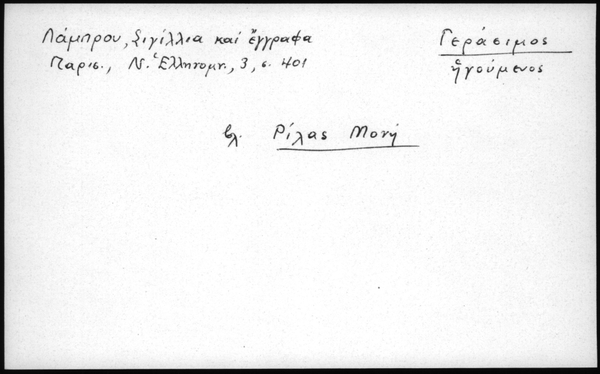 Λάμπρου, Σιγίλλια καί ἔγγραφα
Παρισ., Ν. Ἑλληνομν., 3, σ. 401
Γεράσιμος
ἡγούμενος
βλ. Ρίλας Μονή